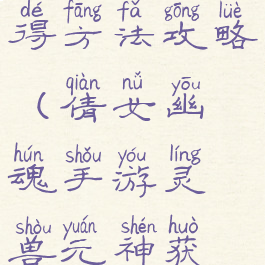 dé fāng fǎ gōng lüè
得方法攻略
qiàn nǚ yōu
(倩女幽
hún shǒu yóu líng
魂手游灵
shòu yuán shén huò
兽元神获